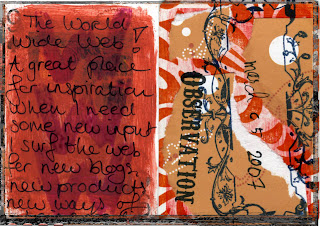 The World
Wide Web!
A great place
for inspiration
when I need
some new input
I surf the web
for new blogs,
new products
new ways of
OBSERVATION
2007